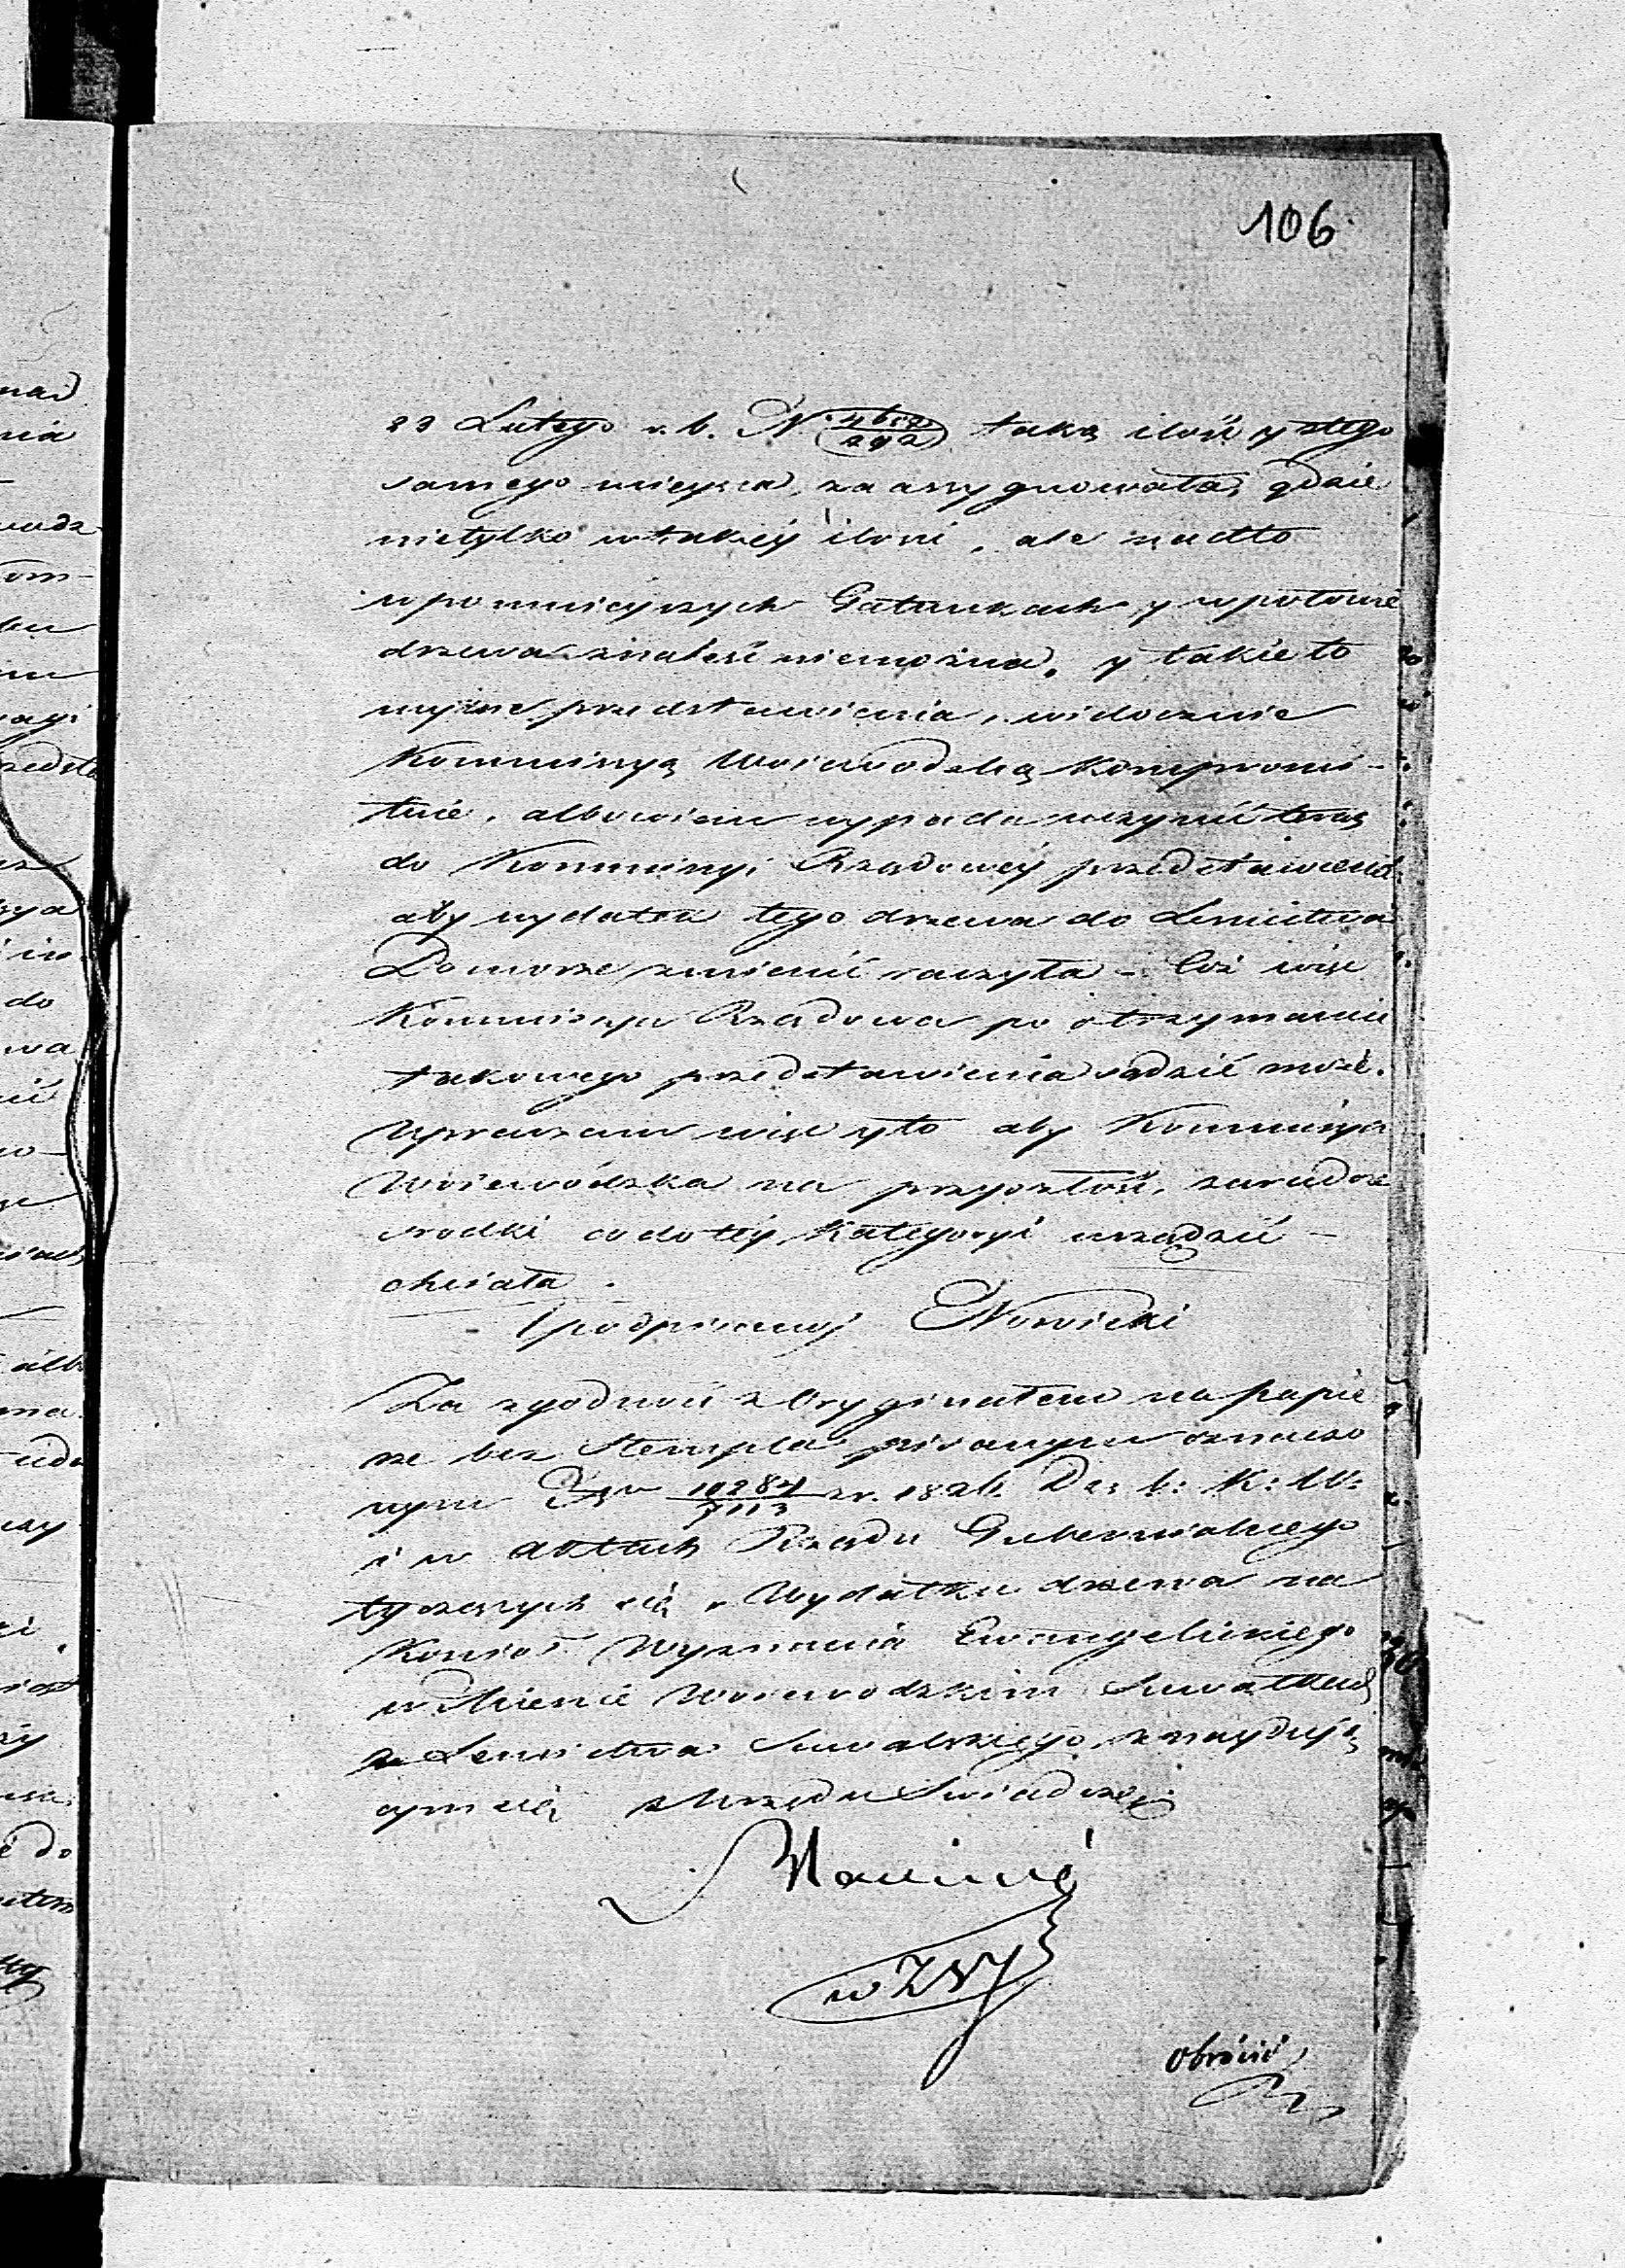 106
23 Lutego r. b. N. 4652/292 taką ilość y ztego
samego mieysca zaassygnowała, gdzie
nietylko wtakiéy ilości, ale nadto
wpomnieyszych Gatunkach y wpołowie
drzewa znaleść niemożna, y takie to
myżne przedstawienia, widocznie
Kommissyą Woiewodzką kompromi-
tuie, albowiem wypada uczynić teraz
do Kommissyi Rządowéy przedstawienie
aby wydatek tego drzewa do Leśnictwa
Domorze zmienić raczyła – Coż więc
Kommissya Rządowa po otrzymaniu
takowego przedstawienia sądzić może.
Upraszam więc y to aby Kommissya
Woiewódzka na przyszłość, zaradcze
srodki co do téy Kategoryi urządzić –
chciała.
/podpisany/ Nowicki
Za zgodność z Oryginałem na papie
rze bez Stempla pisanym oznaczo
nym 10284/7113 z r. 1826. D. i L: K: W:
i w aktach Rządu Gubernialnego
tyczących się Wydatku drzewa na
Koscioł Wyznania Ewangelickiego
w Miescie Woiewodzkim Suwałkach
z Lesnictwa Suwalskiego znayduią
cym się z Urzędu Swiadczę.
w Z N
Obrócić